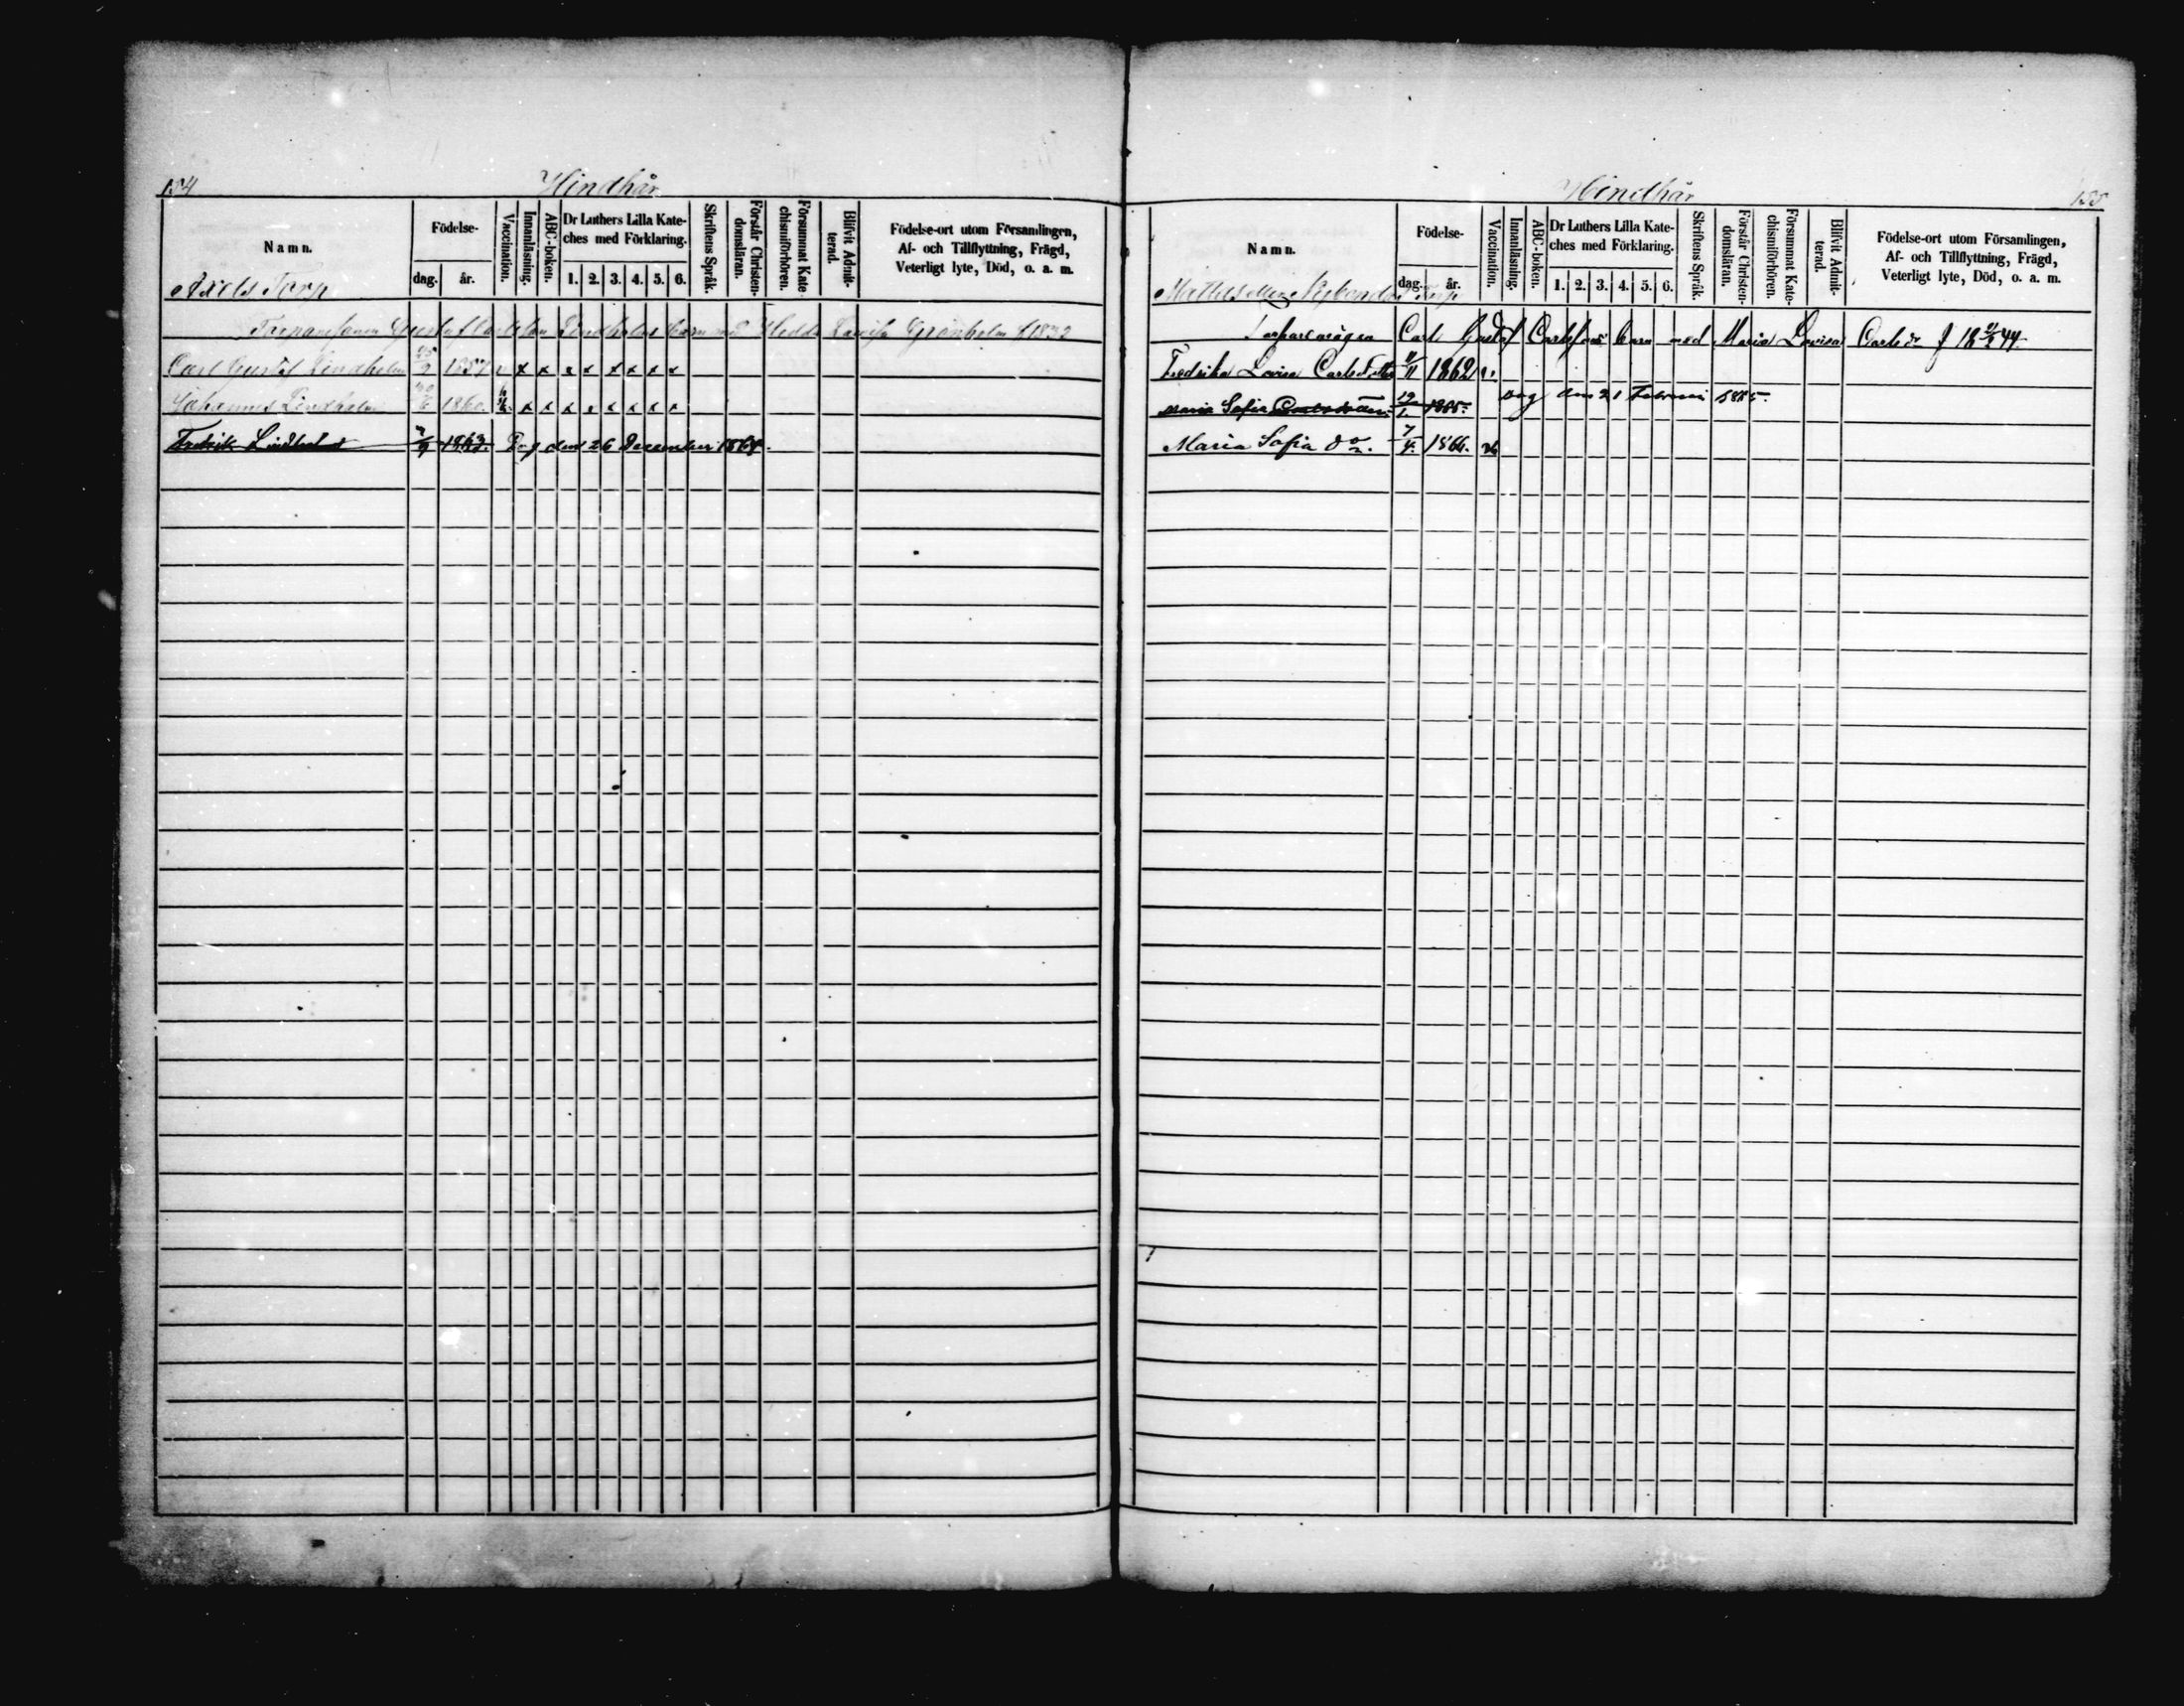 154
Hindhår
Namn.
Födelse-
dag.
år.
Vaccination.
Innanläsning.
ABC-boken.
Dr Luthers Lilla Kate-
ches med Förklaring.
1. 2. 3. 4. 5. 6.
Skriftens Språk.
Förstår Christen-
domsläran.
Försummat Kate
chismiförhören.
Blifvit Admit-
terad.
Födelse-ort utom Församlingen,
Af- och Tillflyttning, Frägd,
Veterligt lyte, Död, o. a. m.
Axels Torp
Gustaf Lindholms barn med Hedda Lovisa Grönholm f 1832
Carl Gustaf Lindholm 1857 x x x x x x x x
Johannes Lindholm 1860. x x x x x x x x
Fredrik Lindholm 1863. Dog den 26 December 1868.
155
Hindhår
Namn.
Födelse-
dag.
år.
Vaccination.
Innanläsning.
ABC-boken.
Dr Luthers Lilla Kate-
ches med Förklaring.
1. 2. 3. 4. 5. 6.
Skriftens Språk.
Förstår Christen-
domsläran.
Försummat Kate-
chismiförhören.
Blifvit Admit-
terad.
Födelse-ort utom Församlingen,
Af- och Tillflyttning, Frägd,
Veterligt lyte, Död, o. a. m.
Torp
Carl Gustaf Carlssons barn med Maria Lovisa Carlsdr f 18 44.
Fredrika Lovisa Carlsdotter 11/11 1862 v.
Maria Sofia Carlsdotter 19/1 1865. dog den 21 Februari 1865.
Maria Sofia do. 7/4. 1866.